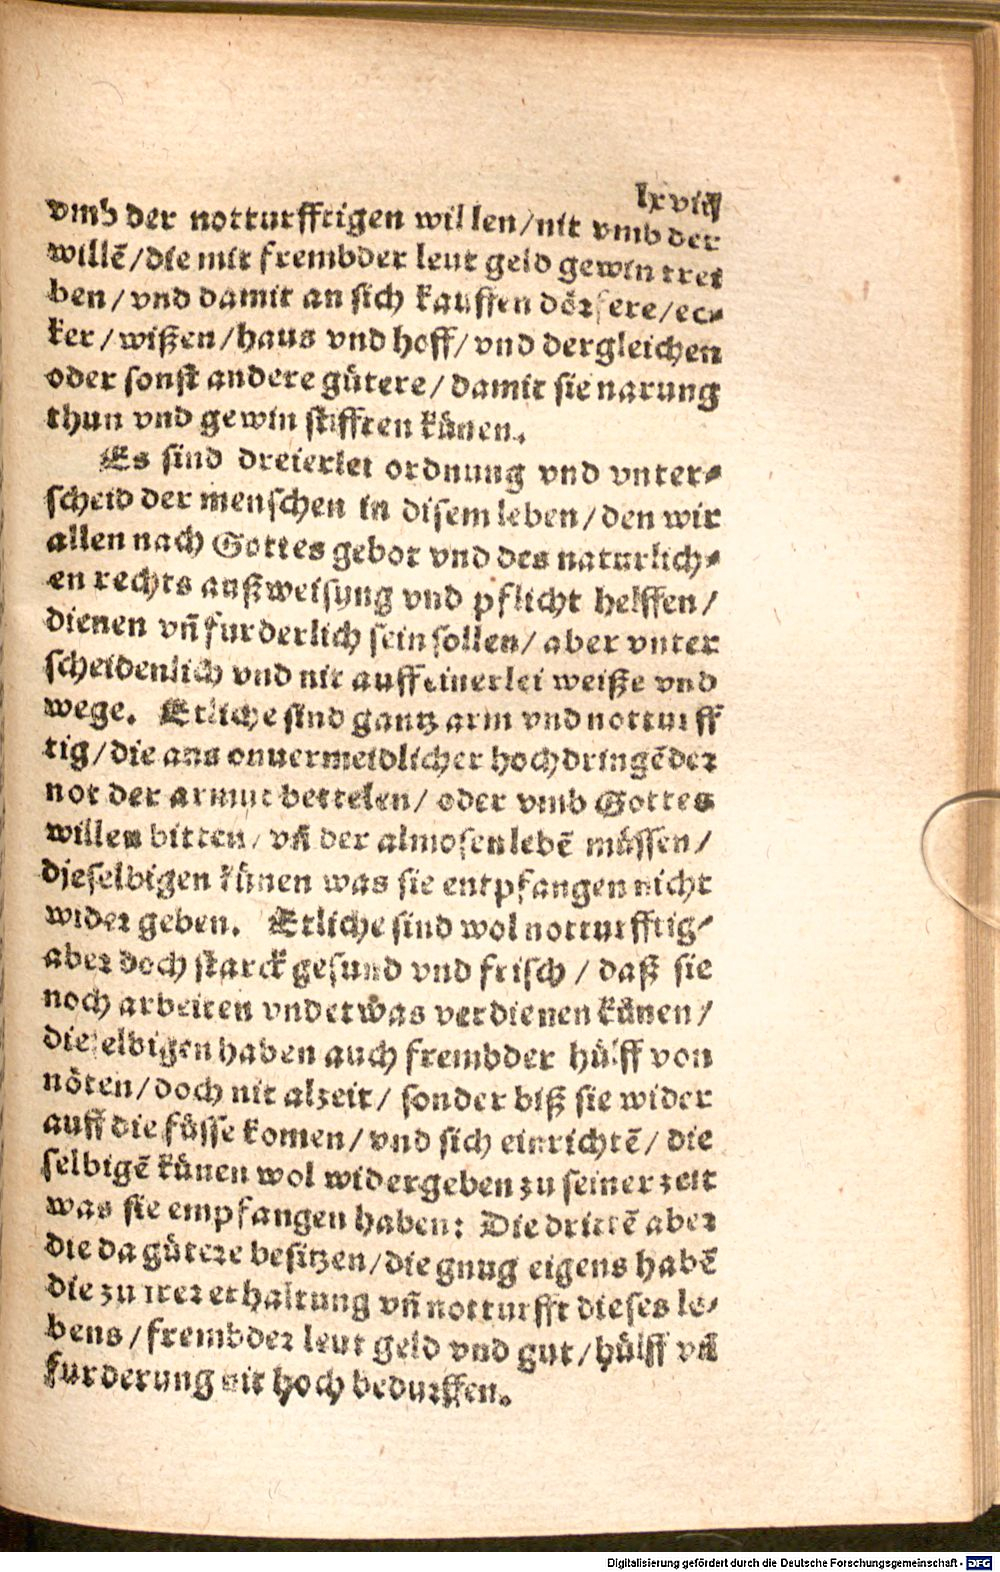 lxviij
vmb der notturfftigen willen/nit vmb der
willē/die mit frembder leut geld gewin trei
ben/vnd damit an sich kauffen dörfere/ec⸗
ker/wißen/haus vnd hoff/vnd dergleichen
oder sonst andere gütere/damit sie narung
thun vnd gewin stifften künen.
Es sind dreierlei ordnung vnd vnter⸗
scheid der menschen in disem leben/den wir
allen nach Gottes gebot vnd des naturlich⸗
en rechts außweisung vnd pflicht helffen/
dienen vñ furderlich sein sollen/aber vnter
scheidenlich vnd nit auff einerlei weiße vnd
wege. Etliche sind gantz arm vnd notturff
tig/die aus onuermeidlicher hochdringēder
not der armut bettelen/oder vmb Gottes
willen bitten/vñ der almosen lebē müssen/
dieselbigen künen was sie entpfangen nicht
wider geben. Etliche sind wol notturfftig⸗
aber doch starck gesund vnd frisch/daß sie
noch arbeiten vnd etwas verdienen künen/
dieselbigen haben auch frembder hülff von
nöten/doch nit alzeit/sonder biß sie wider
auff die füsse komen/vnd sich einrichtē/die
selbigē künen wol widergeben zu seiner zeit
was sie empfangen haben: Die drittē aber
die da gütere besitzen/die gnug eigens habē
die zu irer erhaltung vñ notturfft dieses le⸗
bens/frembder leut geld vnd gut/hülff vñ
furderung nit hoch bedurffen.
Digitalisierung gefördert durch die Deutsche Forschungsgemeinschaft - DFG